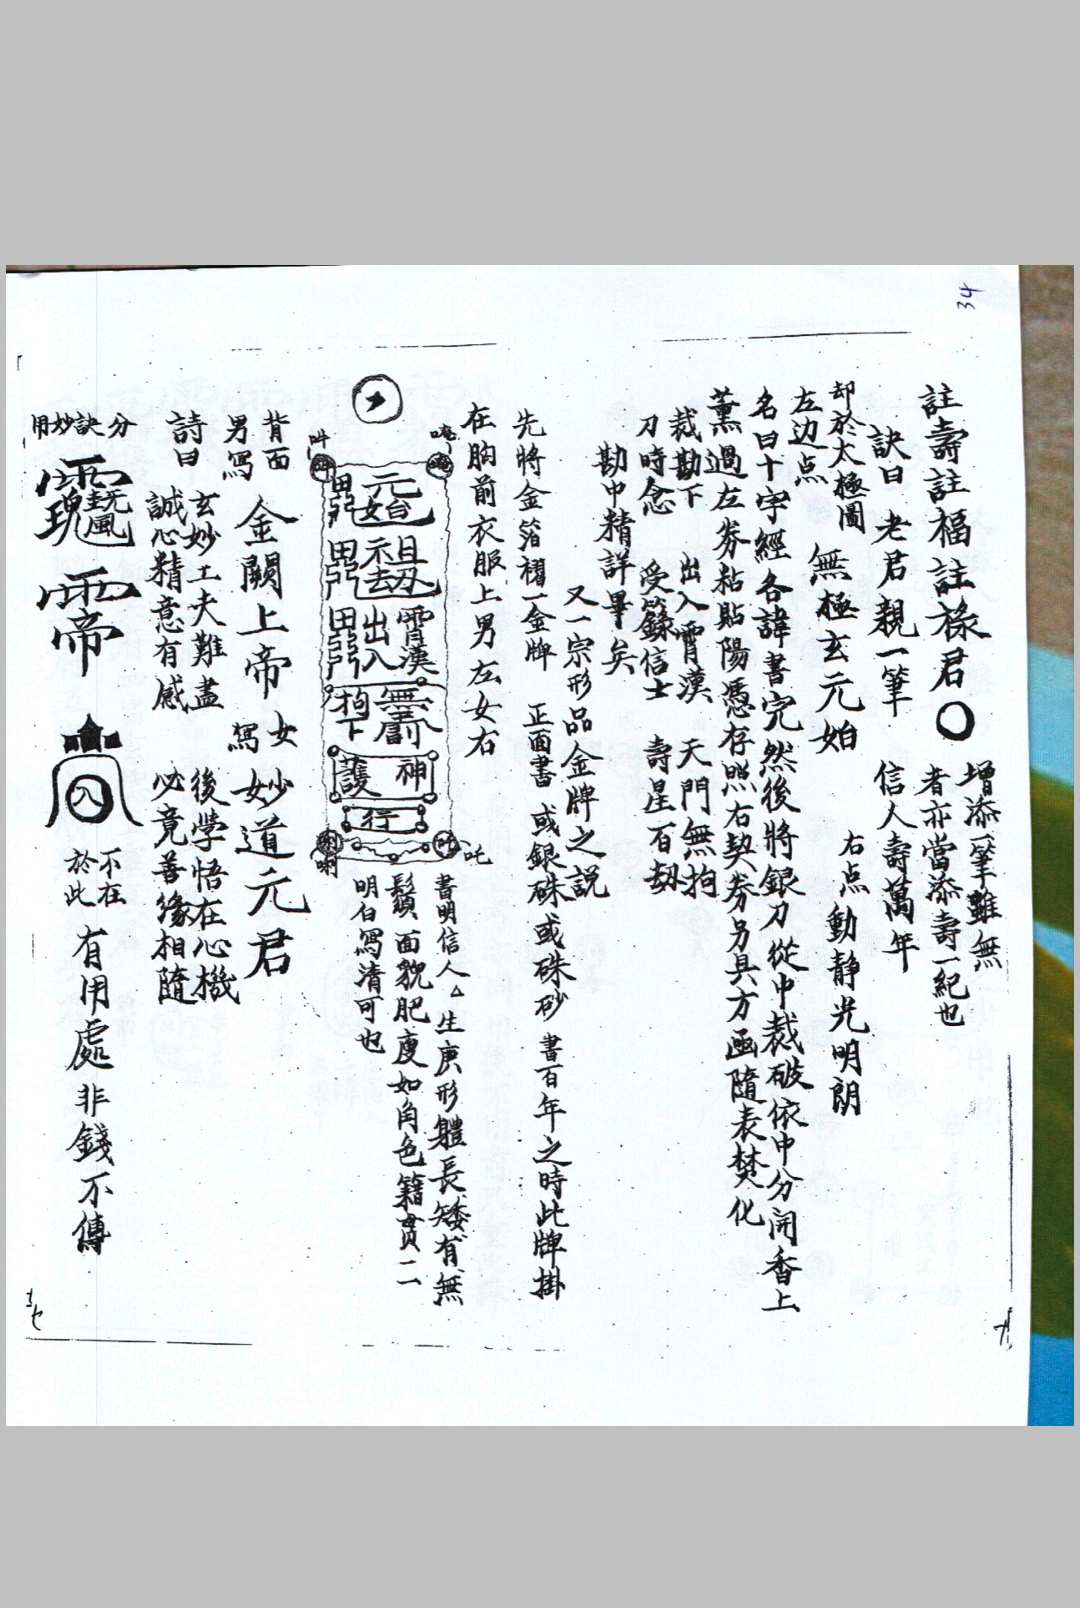 34
增添一筆雖無
註壽註福註祿君〇 者亦當添壽一紀也
訣曰 老君親一筆 信人壽萬年
却於太極圖 無極玄元始 右点動靜光明朗
左边点
名曰十字經各諱書完然後將銀刀從中裁破依中分開香上
薰過左券粘貼陽憑存照右契券另具方函隨表焚化
裁勘下 出入霄漢 天門無拘
刀時念 受籙信士 壽星百劫
勘中精詳畢矣
又一宗形品金牌之説
先將金箔褶一金牌 正面書 或銀硃或硃砂 書百年之時此牌掛
在胸前衣服上男左女右
唵
吽
吒
元始
祖劫
霄漢
出入
無罰
拘下
神
護
行
書明信人△生庚形軆長矮有無
鬚面貌肥瘦如角色籍貫二
明白寫清可也
背面
男寫 金闕上帝 女寫 妙道元君
詩曰 玄妙工夫難盡 後學悟在心機
誠心精意有感 必竟善緣相隨
分訣妙用
帝
入
不在於此 有用處非錢不傳